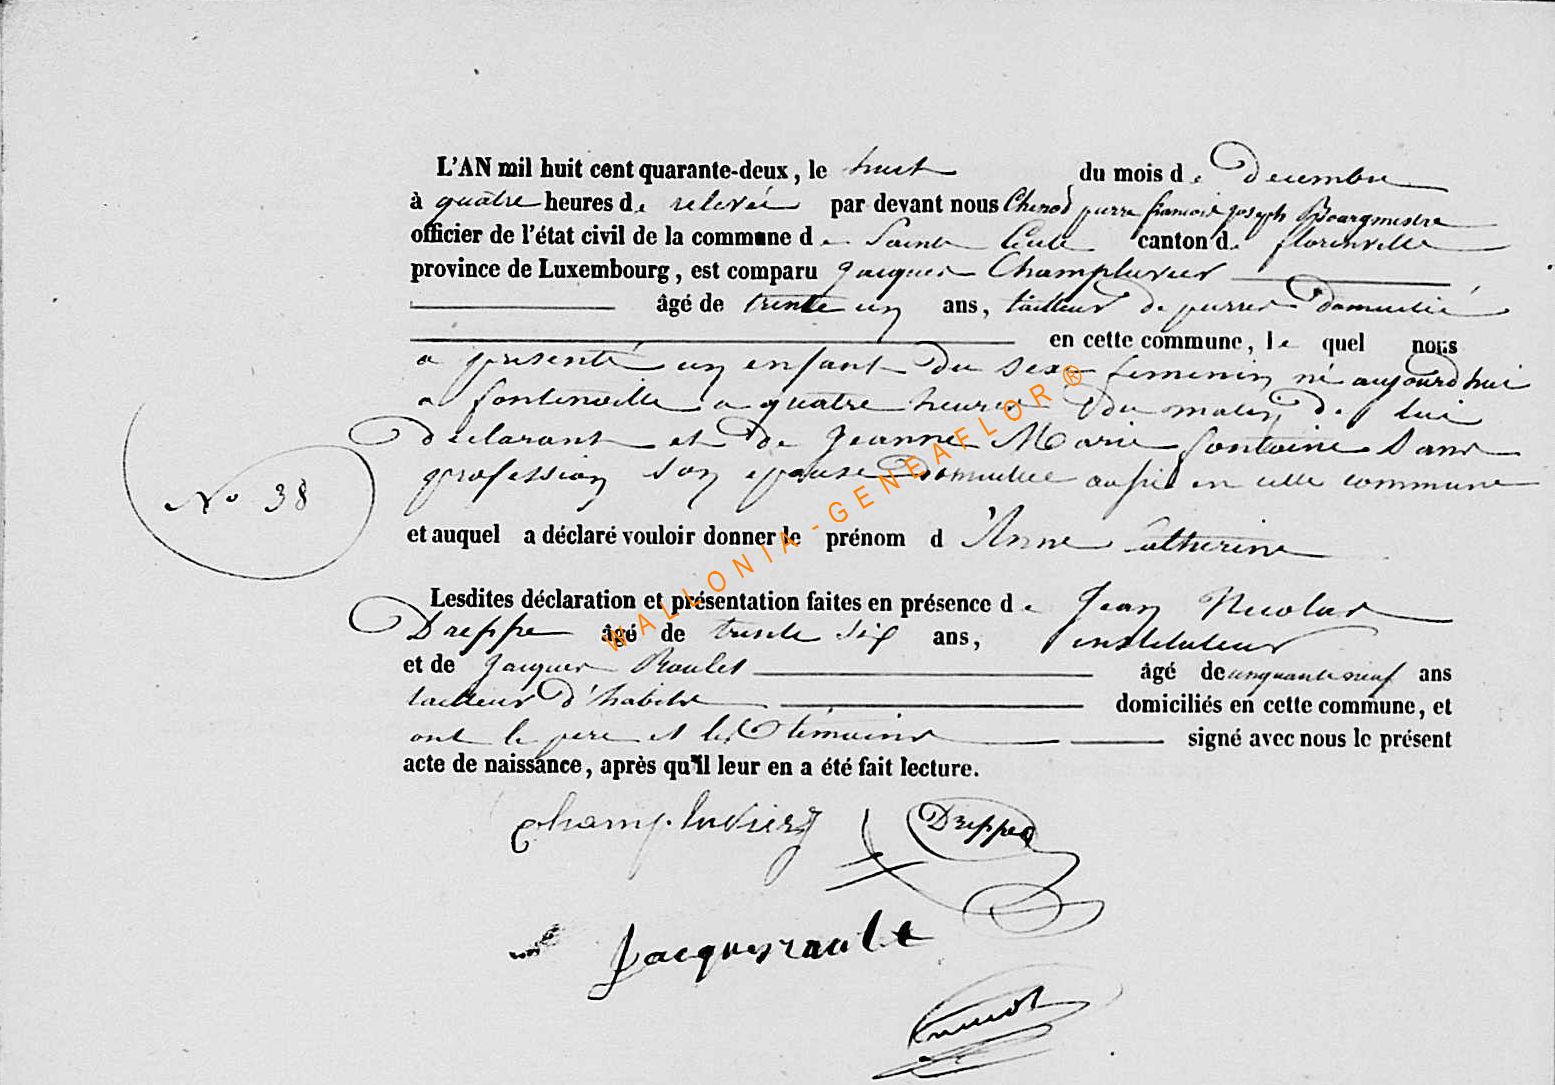 L'AN mil huit cent quarante-deux, le huit du mois de Decembre
à quatre heures de relevée par devant nous Chenot pierre françois joseph Bourgmestre
officier de l'état civil de la commune de Sainte Cecile canton de florenville
province de Luxembourg, est comparu Jacques Champluvier
âgé de trente un ans, tailleur de pierres domicilié
en cette commune, le quel nous
a présenté un enfant du sexe feminin né aujourdhui
a fontenoille a quatre heures du matin de lui
déclarant et de Jeanne Marie fontaine sans
profession son epouse domiciliee aussi en cette commune
No 38
et auquel a déclaré vouloir donner le prénom d'Anne Catherine
Lesdites déclaration et présentation faites en présence de Jean Nicolas
Dreppe âgé de trente six ans, instituteur
et de Jacques Roulet âgé de cinquante neuf ans
tailleur d'habits domiciliés en cette commune, et
ont le pere et les témoins signé avec nous le présent
acte de naissance, après qu'il leur en a été fait lecture.
Champluvier Dreppe
Jacques
Chenot
WALLONIA - GENEAFLOR ®